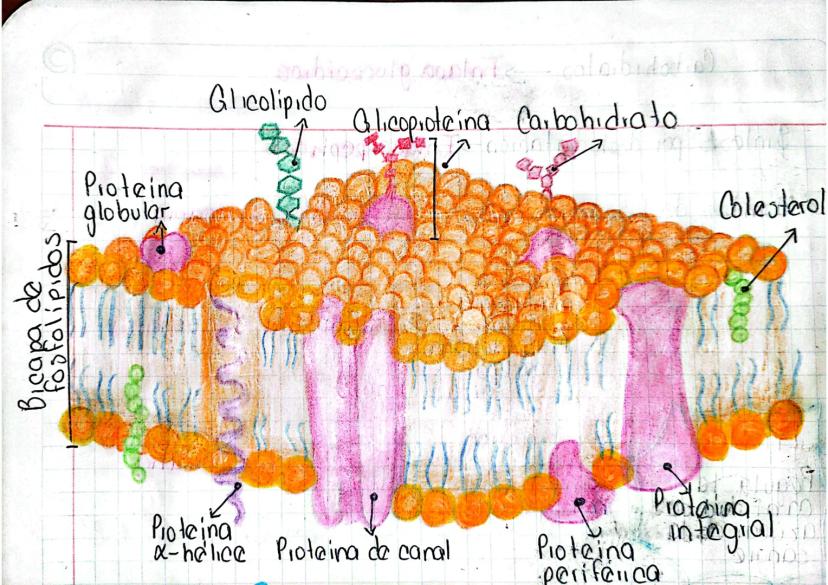 Glicolípido
Glicoproteína
Carbohidrato
Proteína
globular
Colesterol
Bicapa de
fosfolípidos
Proteína
α-hélice
Proteína de canal
Proteína
periférica
Proteína
integral